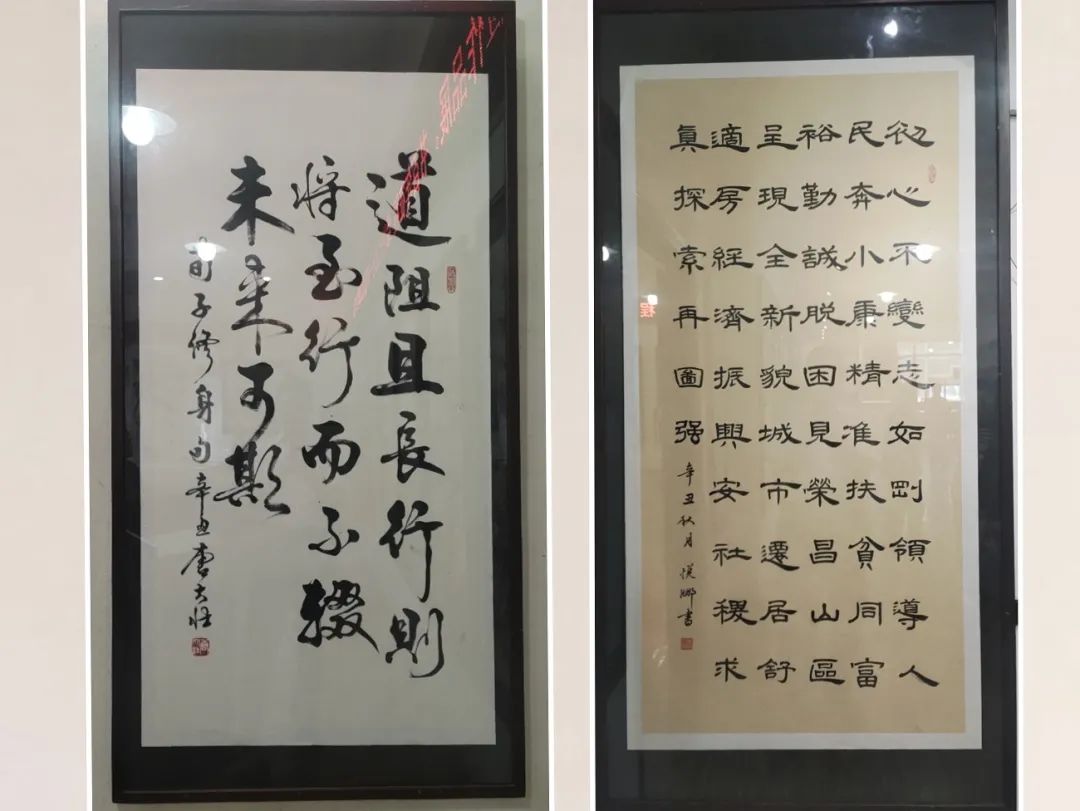 道阻且長行則
将至行而不輟
未来可期
荀子修身句辛丑唐大
初心不變志如剛領導人
民奔小康精准扶貧同富
裕勤誠脱困見榮昌山區
呈現全新貌城市遷居舒
適房經濟振興安社稷求
眞探索再圖强
辛丑秋月 娜書